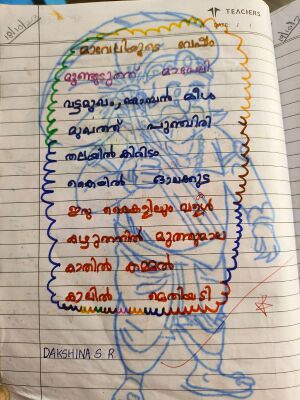 TEACHERS
DATE: / /
മാവേലിയുടെ വേഷം
മുണ്ടുടുത്ത് മാവേലി
വട്ടമുഖം, കൊമ്പൻ മീശ
മുഖത്ത് പുഞ്ചിരി
തലയിൽ കിരീടം
കൈയിൽ ഓലക്കുട
ഇരു കൈകളിലും വള
കഴുത്തിൽ മുത്തുമാല
കാതിൽ കമ്മൽ
കാലിൽ മെതിയടി
DAKSHINA S R